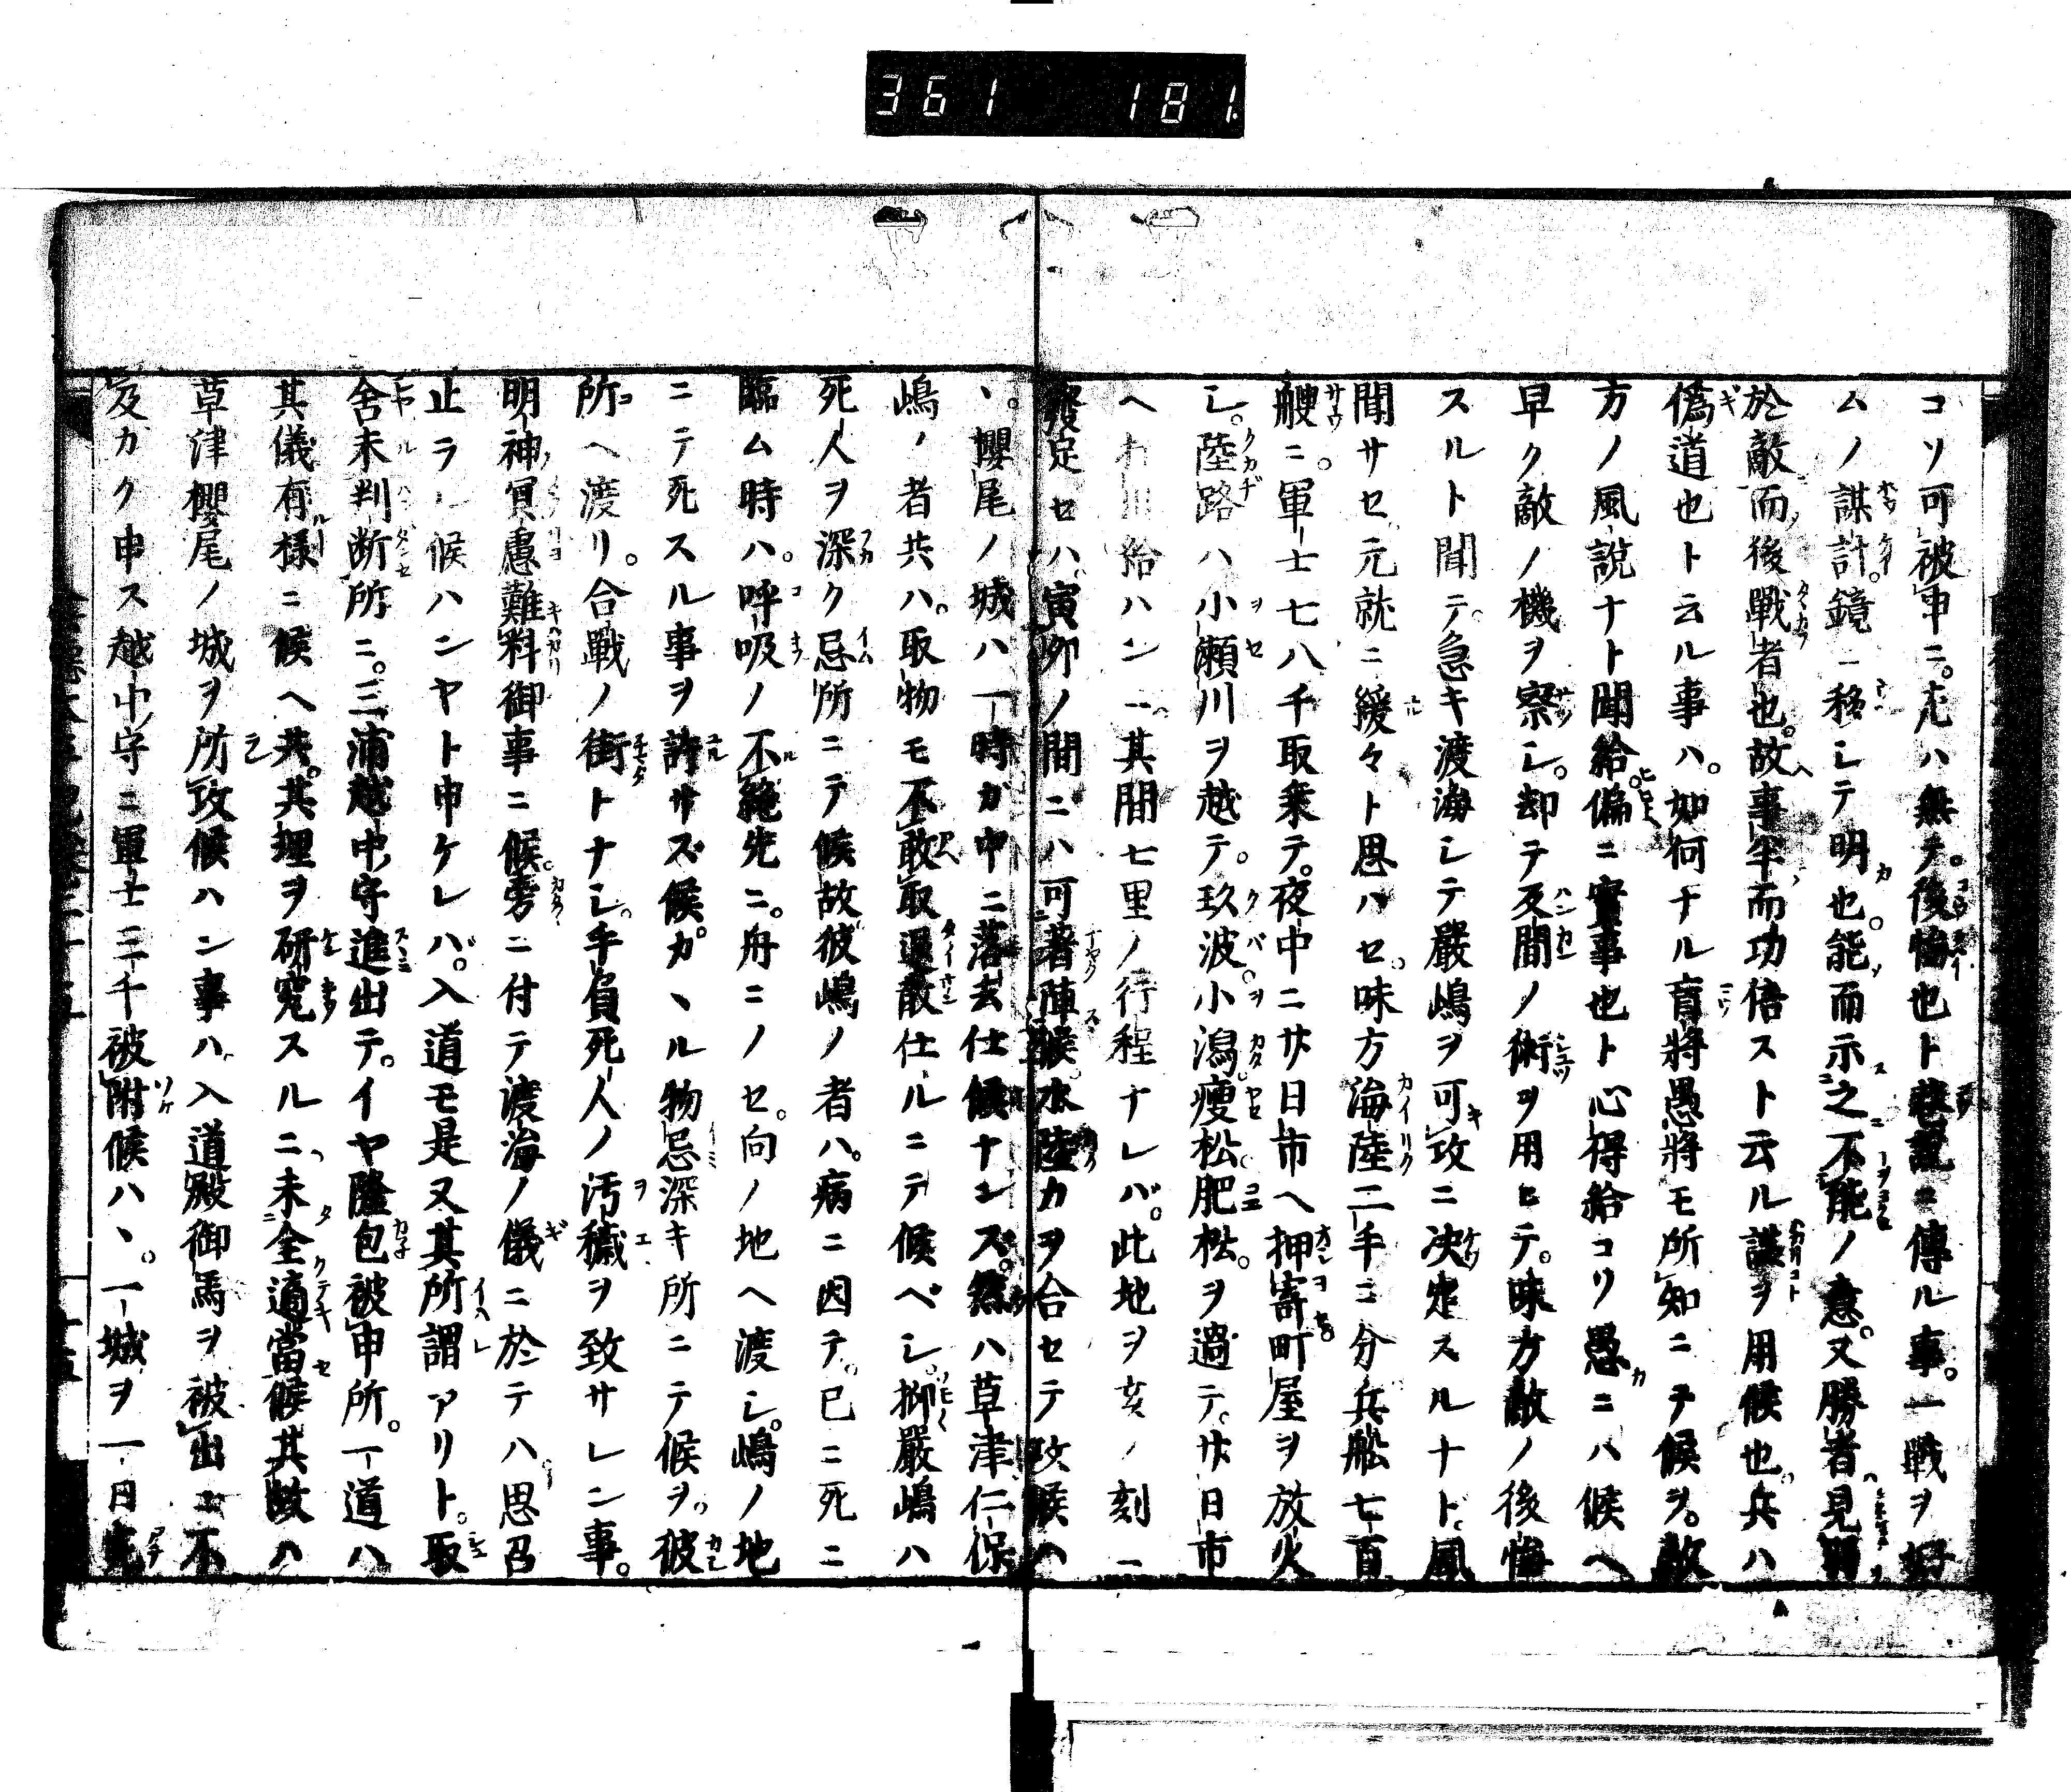 361 181
コソ可被申ニ。尤ハ無テ。後悔也ト巷説ニ傳ル事。一戰ヲ好
ムノ謀計。鏡ニ移シテ明也。能而示之不能ノ意。又勝者見明
於敵而後戰者也。故事半而功倍スト云ル謀ヲ用候也。兵ハ
偽道也ト云ル事ハ。如何ナル盲將愚將モ所知ニテ候ヲ。敵
方ノ風説ナト聞給。偏ニ實事也ト心得給コソ愚ニハ候ヘ
早ク敵ノ機ヲ察シ。却テ反間ノ術ヲ用ヒテ。味方敵ノ後悔
スルト聞テ。急キ渡海シテ嚴嶋ヲ可攻ニ决定スルナト。風
聞サセ元就ニ緩々ト思ハセ。味方海陸二手ニ分兵舩七百
艘ニ。軍士七八千取乘テ。夜中ニ廿日市ヘ押寄町屋ヲ放火
シ。陸路ハ小瀬川ヲ越テ。玖波小潟瘦松肥松。ヲ過テ。廿日市
ヘ 給ハンニ。其間七里ノ行程ナレバ。此地ヲ亥ノ刻ニ
發定セハ。寅夘ノ間ニハ可著陣候。水陸力ヲ合セテ攻候ハ
ヽ。櫻尾ノ城ハ一時ガ中ニ落去仕候ナンズ。然ハ草津仁保
嶋ノ者共ハ。取物モ不敢取退散仕ルニテ候ベシ。抑嚴嶋ハ
死人ヲ深ク忌所ニテ候故彼嶋ノ者ハ。病ニ因テ。已ニ死ニ
臨ム時ハ。呼吸ノ不絶先ニ。舟ニノセ。向ノ地ヘ渡シ。嶋ノ地
ニテ死スル事ヲ許サズ候。カヽル物忌深キ所ニテ候ヲ。彼
所ヘ渡リ。合戰ノ街トナシ。手負死人ノ汚穢ヲ致サレン事。
明神冥慮難料御事ニ候。旁ニ付テ渡海ノ儀ニ於テハ思召
止ラル候ハンヤト申ケレバ。入道モ是又其所謂アリト。取
舍未判断所ニ。三浦越中守進出テ。イヤ隆包被申所。一道ハ
其儀有様ニ候ヘ共。其理ヲ研究スルニ未全適當候其故ハ
草津櫻尾ノ城ヲ所攻候ハン事ハ入道殿御馬ヲ被出ニ不
及カク申ス越中守ニ軍士三千被附候ハヽ。一城ヲ一日宛